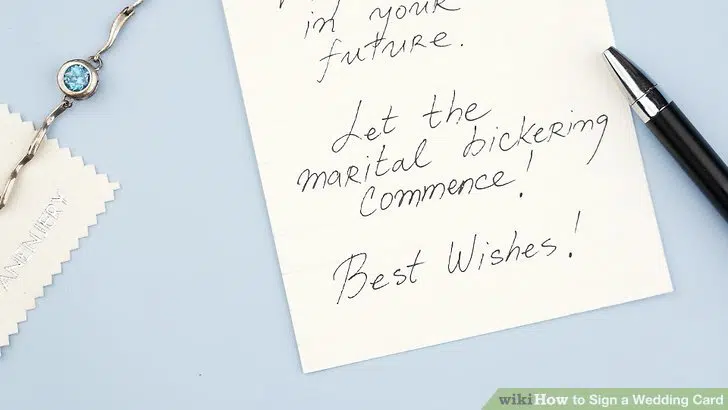 in your
future.
Let the
marital bickering
commence!
Best Wishes!
wikiHow to Sign a Wedding Card